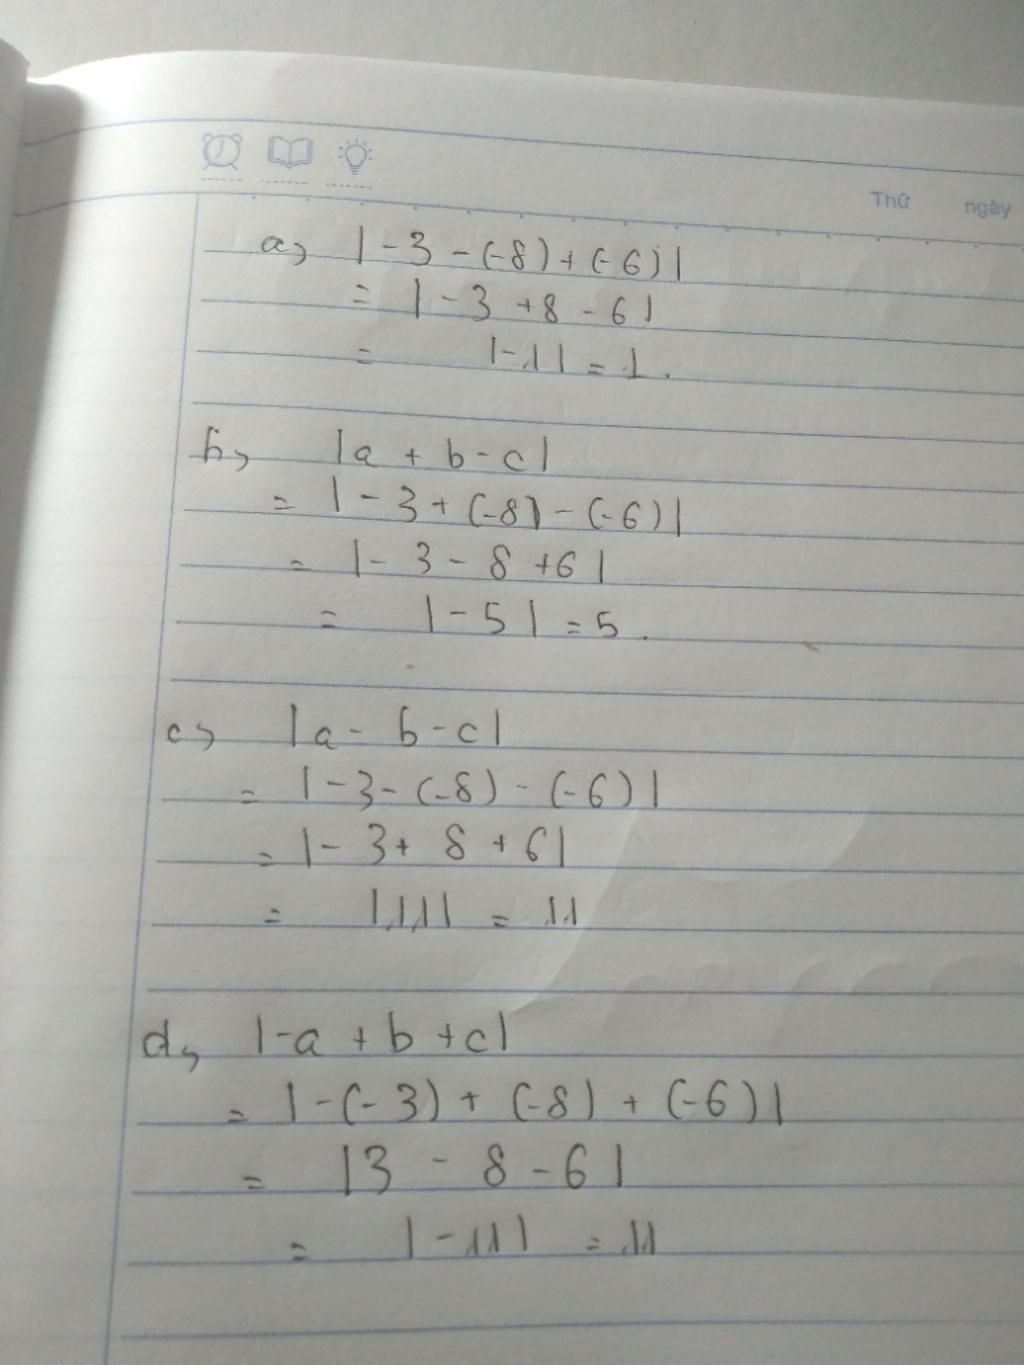 Thứ ngày
a, |-3-(-8)+(-6)|
= |-3+8-6|
= |-1| = 1.
b, |a+b-c|
= |-3+(-8)-(-6)|
= |-3-8+6|
= |-5| = 5.
c, |a-b-c|
= |-3-(-8)-(-6)|
= |-3+8+6|
= |11| = 11
d, |-a+b+c|
= |-(-3)+(-8)+(-6)|
= |3-8-6|
= |-11| = 11